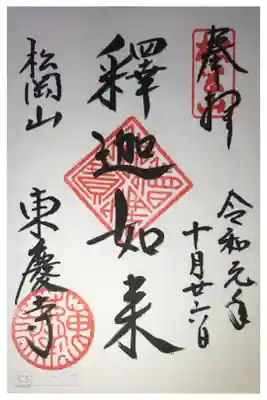 奉拝
令和元年
十月廿六日
釋迦如来
松岡山
東慶寺
CS